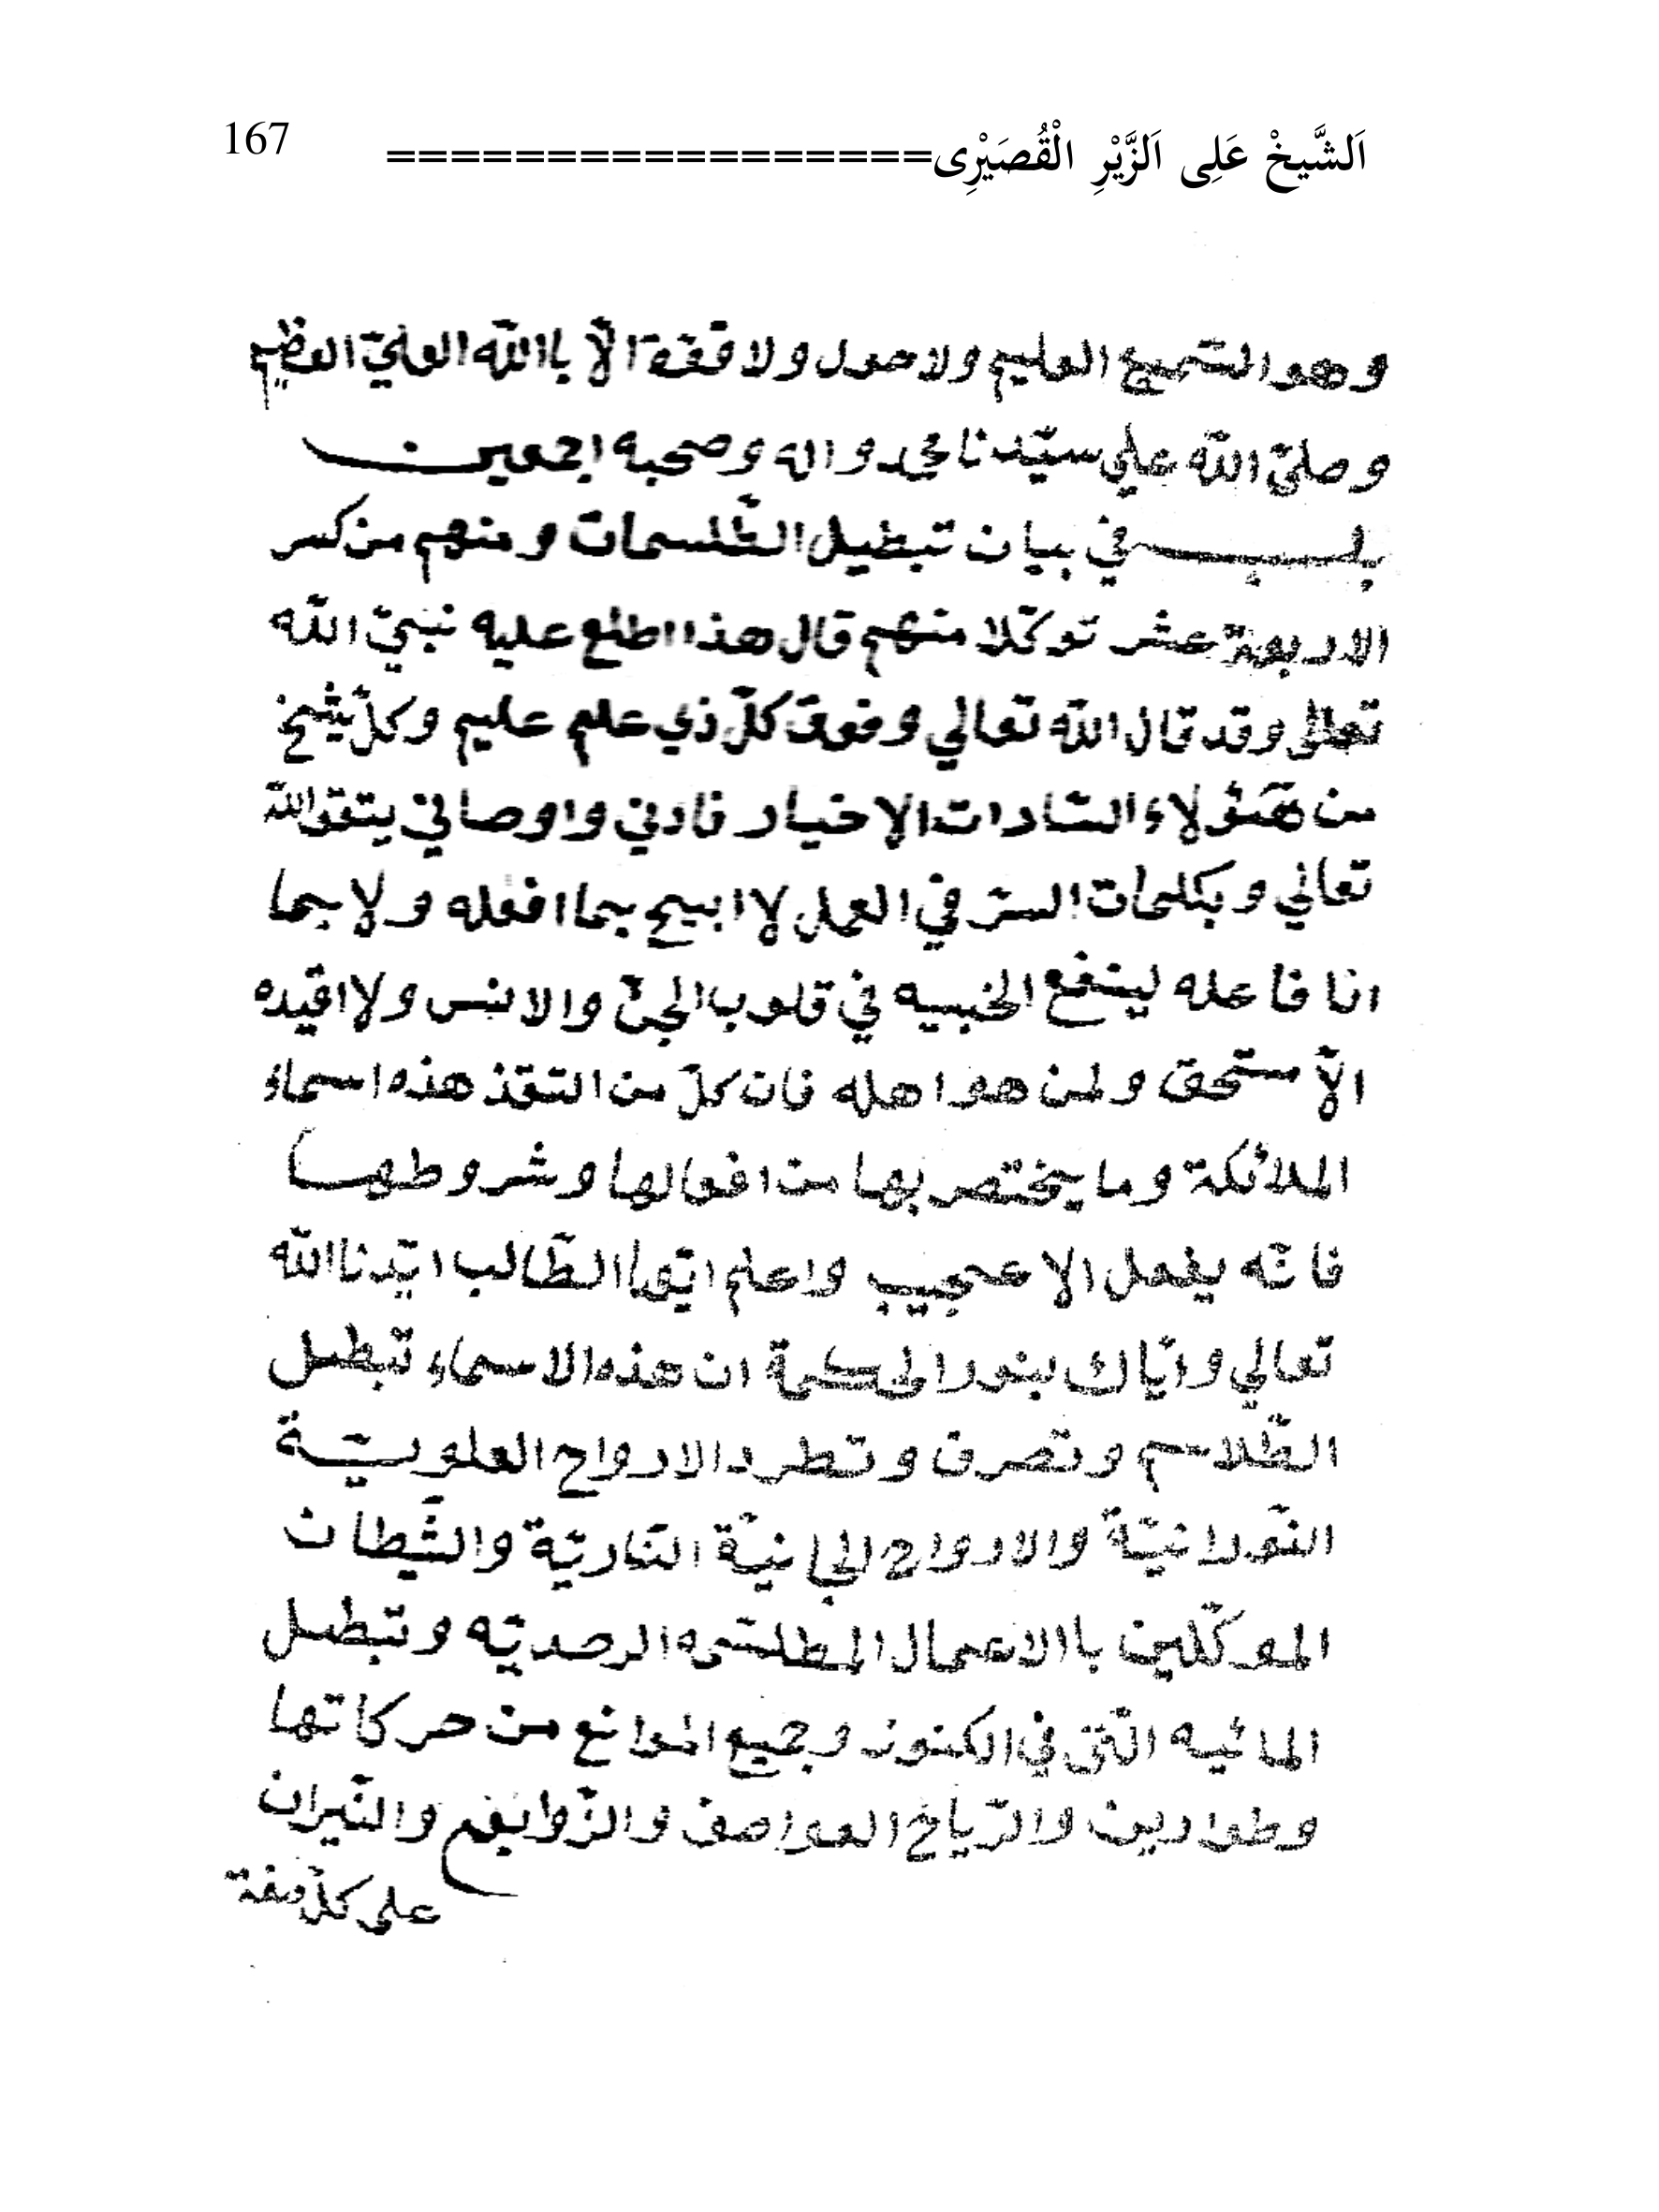 اَلشَّيخْ عَلِى اَلزَّيْرِ الْقُصَيْرِى================= 167
وهو السّميع العليم ولا حول ولا قوّة الّا باالله العليّ العظيم
وصلّي اللّه علي سيّدنا محمد واله وصحبه اجمعين
باب في بيان تبطيل الطّلسمات ومنهم من كسر
الاربعة عشر توكّلا منهم قال هذا اطلع عليه نبيّ اللّه
تعالى وقد قال اللّه تعالي وفوق كلّ ذي علم عليم وكلّ شيخ
من هؤلاء السّادات الاخيار نادني واوصاني يتقو اللّه
تعالي وبكلمات السرّ في العمل لا ابيح بما افعله ولا بما
انا فاعله لينفع الخبيه في قلوب الجنّ والانس ولا اقيده
الّا مستحق ولمن هو اهله فان كلّ من التقذ هذه اسماء
الملائكة وما يختصر بها من افعالها وشروطها
فانّه يفعل الاعجيب واعلم ايّها الطّالب ايّدنا اللّه
تعالي وايّاك بنور الحكمة ان هذه الاسماء تبطل
الطّلاسم وتصرف وتطرد الارواح العلويّة
النّورانيّة والارواح الجانيّة النّاريّة والشّيطان
الموكّلين باالاعمال المطلسّمه الرصديّه وتبطل
المائيه الّتى في الكنوز وجميع الموانع من حركاتها
وطوارين والرّياح العواصف والزّوابعم والنّيران
على كلّ صفة